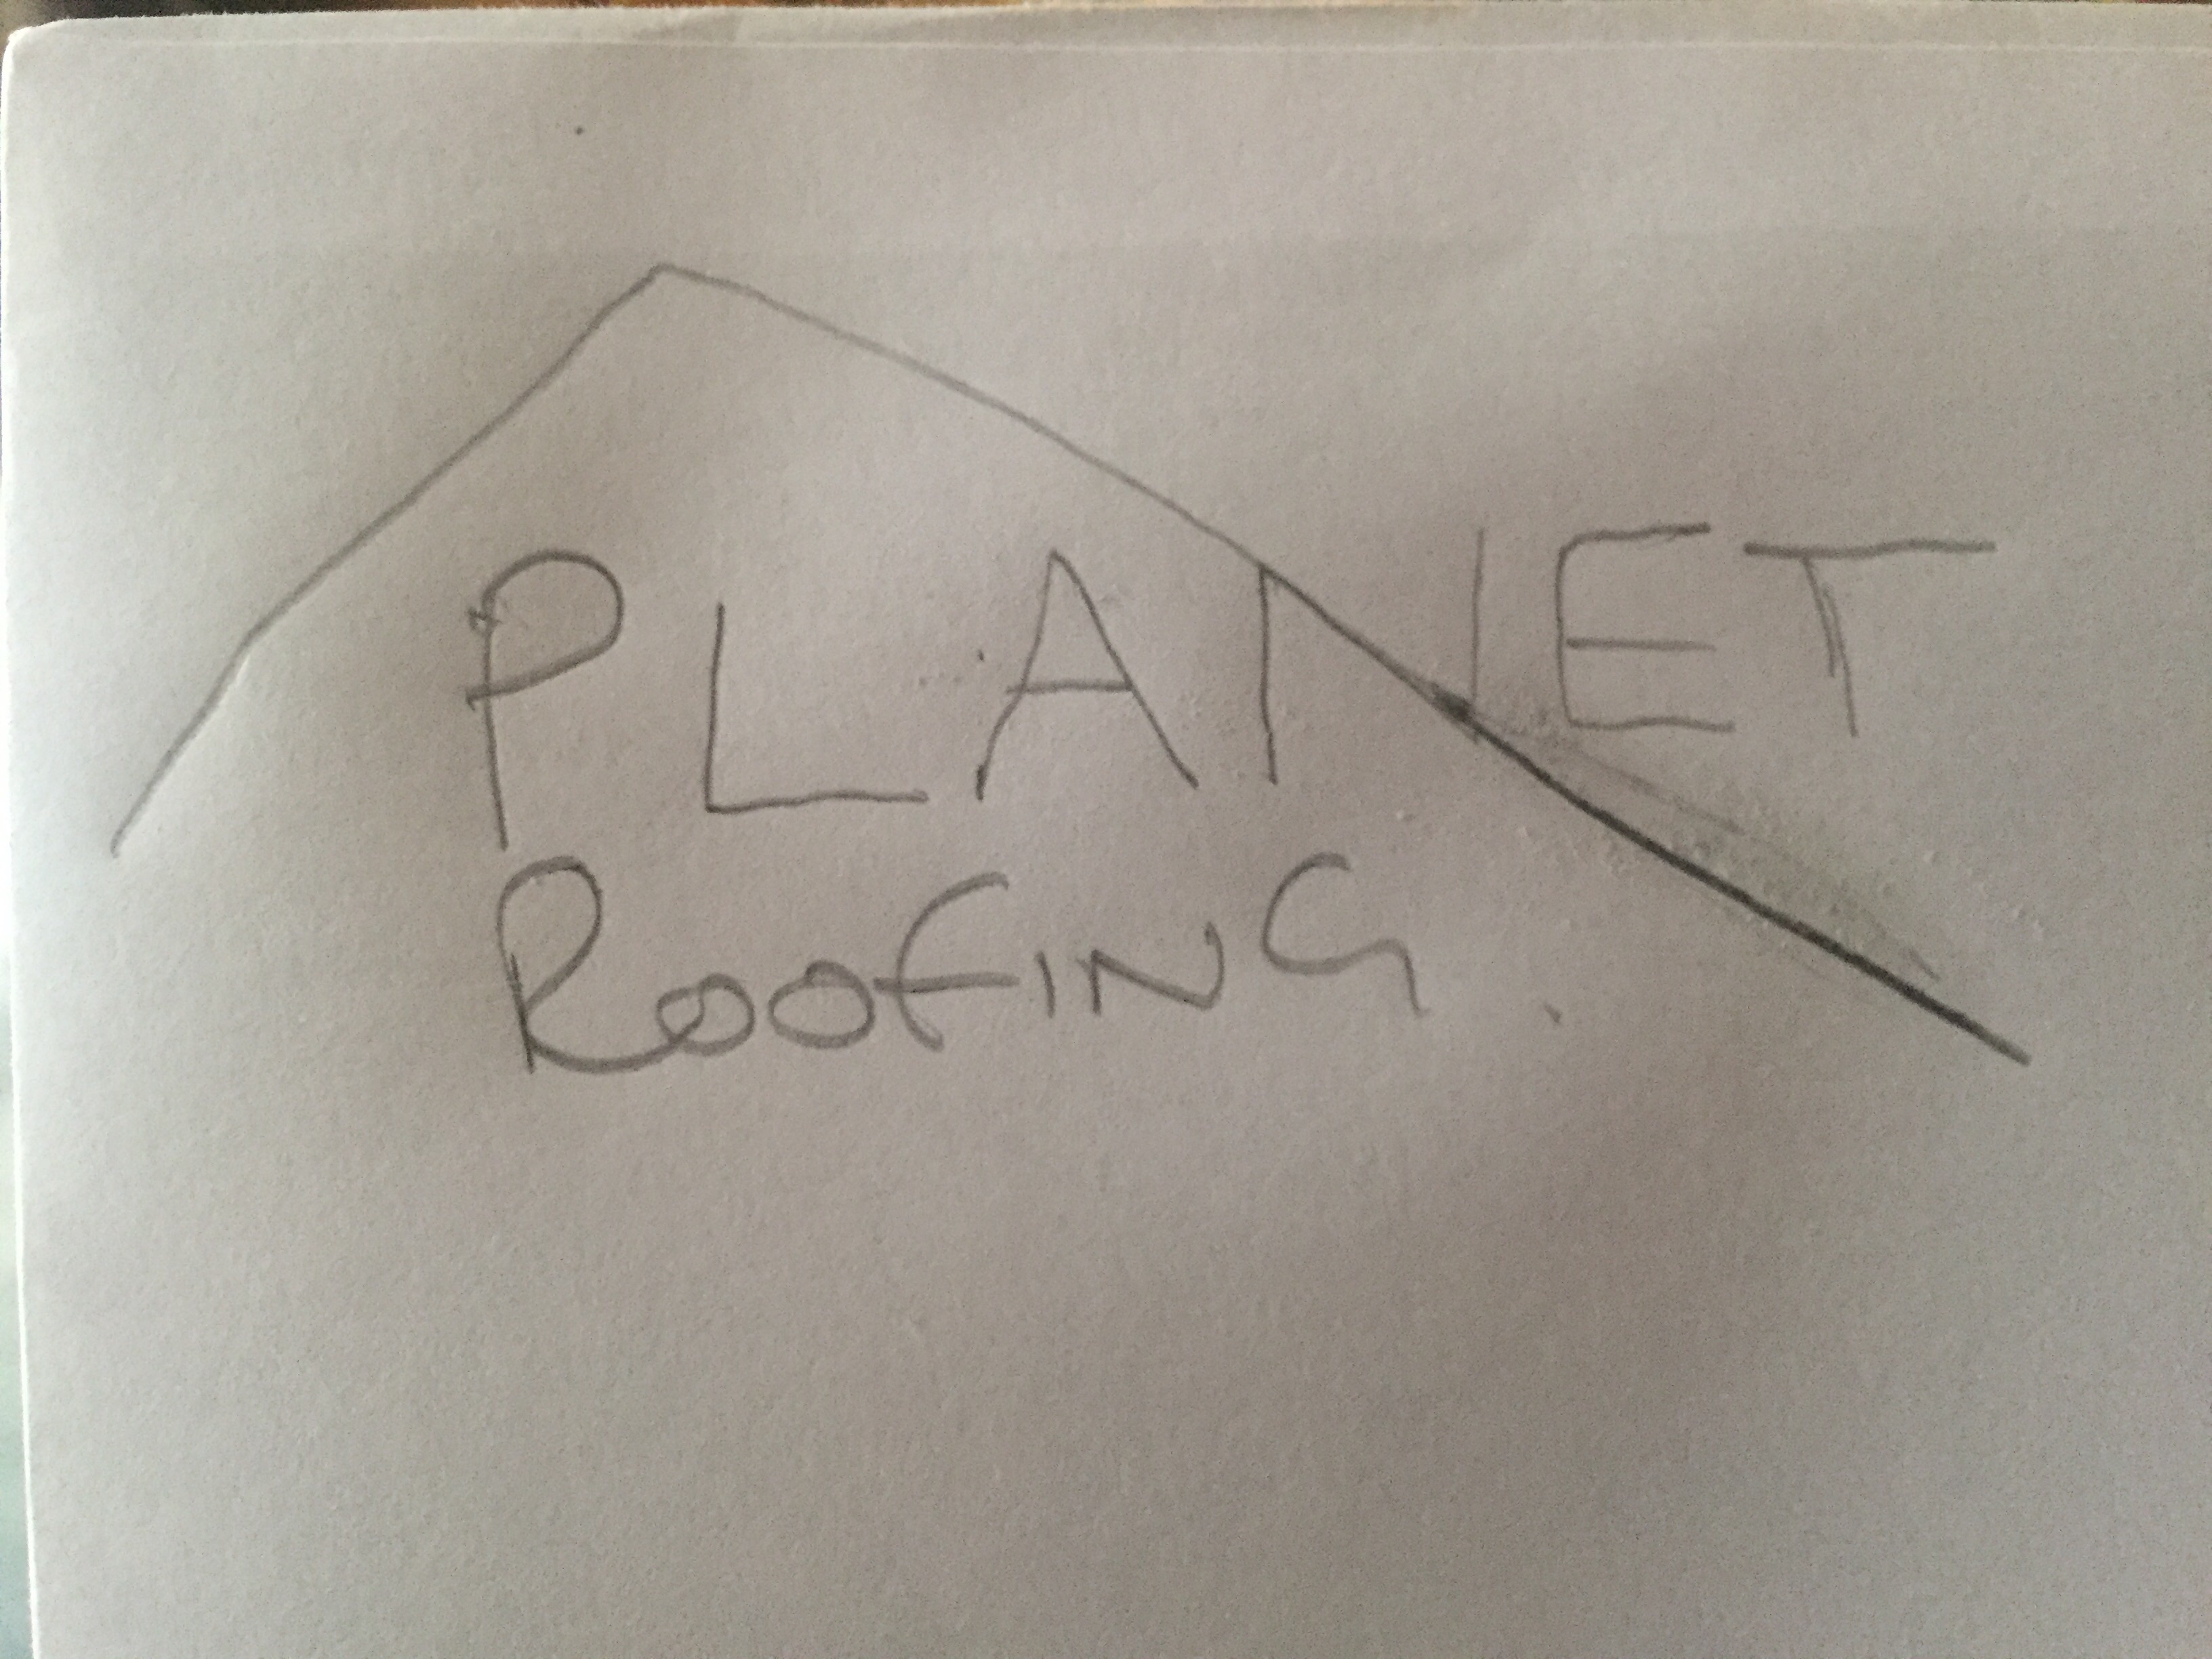 PLANET
ROOFING.